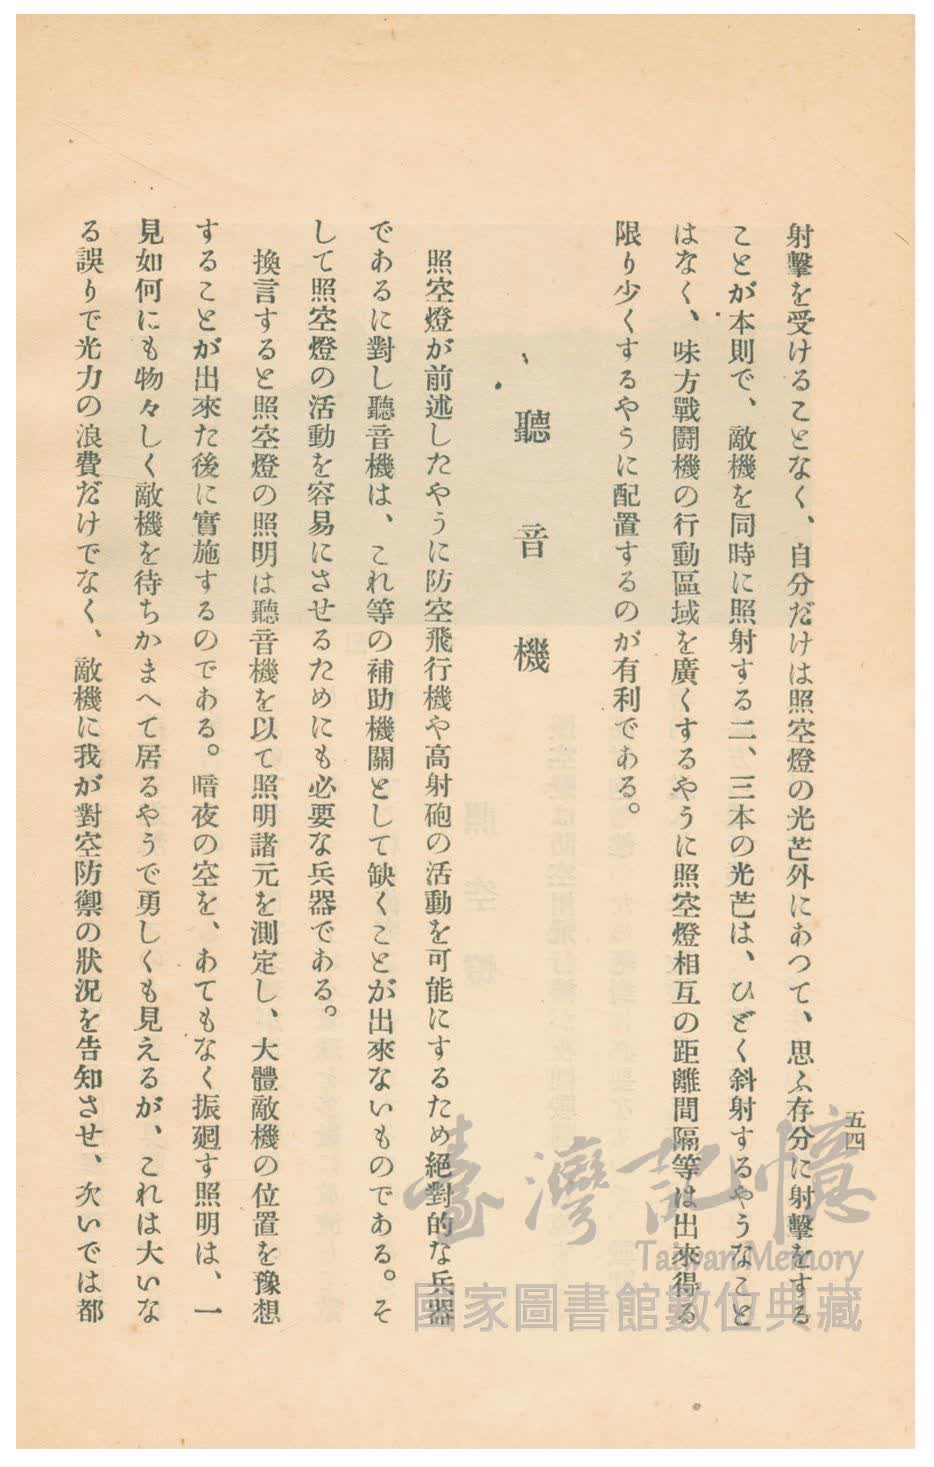 射擊を受けることなく、自分だけは照空燈の光芒外にあつて、思ふ存分に射擊をする
ことが本則で、敵機を同時に照射する二、三本の光芒は、ひどく斜射するやうなこと
はなく、味方戰鬪機の行動區域を廣くするやうに照空燈相互の距離間隔等は出來得る
限り少くするやうに配置するのが有利である。
聽音機
照空燈が前述したやうに防空飛行機や高射砲の活動を可能にするため絕對的な兵器
であるに對し聽音機は、これ等の補助機關として缺くことが出來ないものである。そ
して照空燈の活動を容易にさせるためにも必要な兵器である。
換言すると照空燈の照明は聽音機を以て照明諸元を測定し、大體敵機の位置を豫想
することが出來た後に實施するのである。暗夜の空を、あてもなく振廻す照明は、一
見如何にも物々しく敵機を待ちかまへて居るやうで勇しくも見えるが、これは大いな
る誤りで光力の浪費だけでなく、敵機に我が對空防禦の狀況を告知させ、次いでは都
五四
臺灣記憶
Taiwan Memory
國家圖書館數位典藏